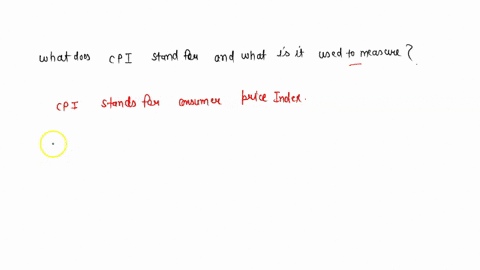 what does CPI stand for and what is it used to measure?
CPI stands for consumer price Index.